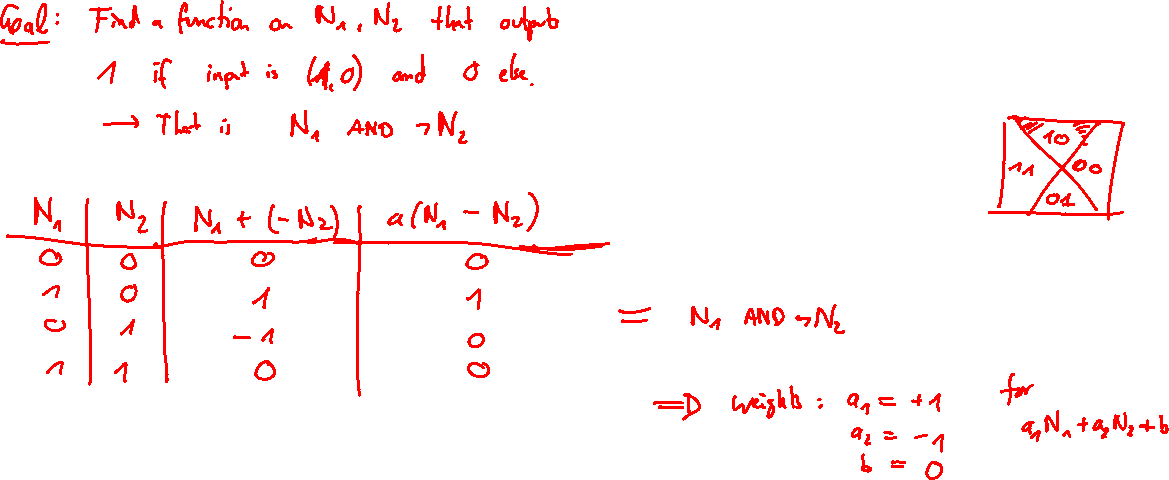 Goal: Find a function on N₁, N₂ that outputs
1 if input is (1,0) and 0 else.
→ That is N₁ AND ¬N₂
10
11 00
01
N₁ | N₂ | N₁ + (-N₂) | a(N₁ - N₂)
0 | 0 | 0 | 0
1 | 0 | 1 | 1
0 | 1 | -1 | 0
1 | 1 | 0 | 0
= N₁ AND ¬N₂
⇒ weights: a₁ = +1 for
a₂ = -1 a₁N₁+a₂N₂+b
b = 0